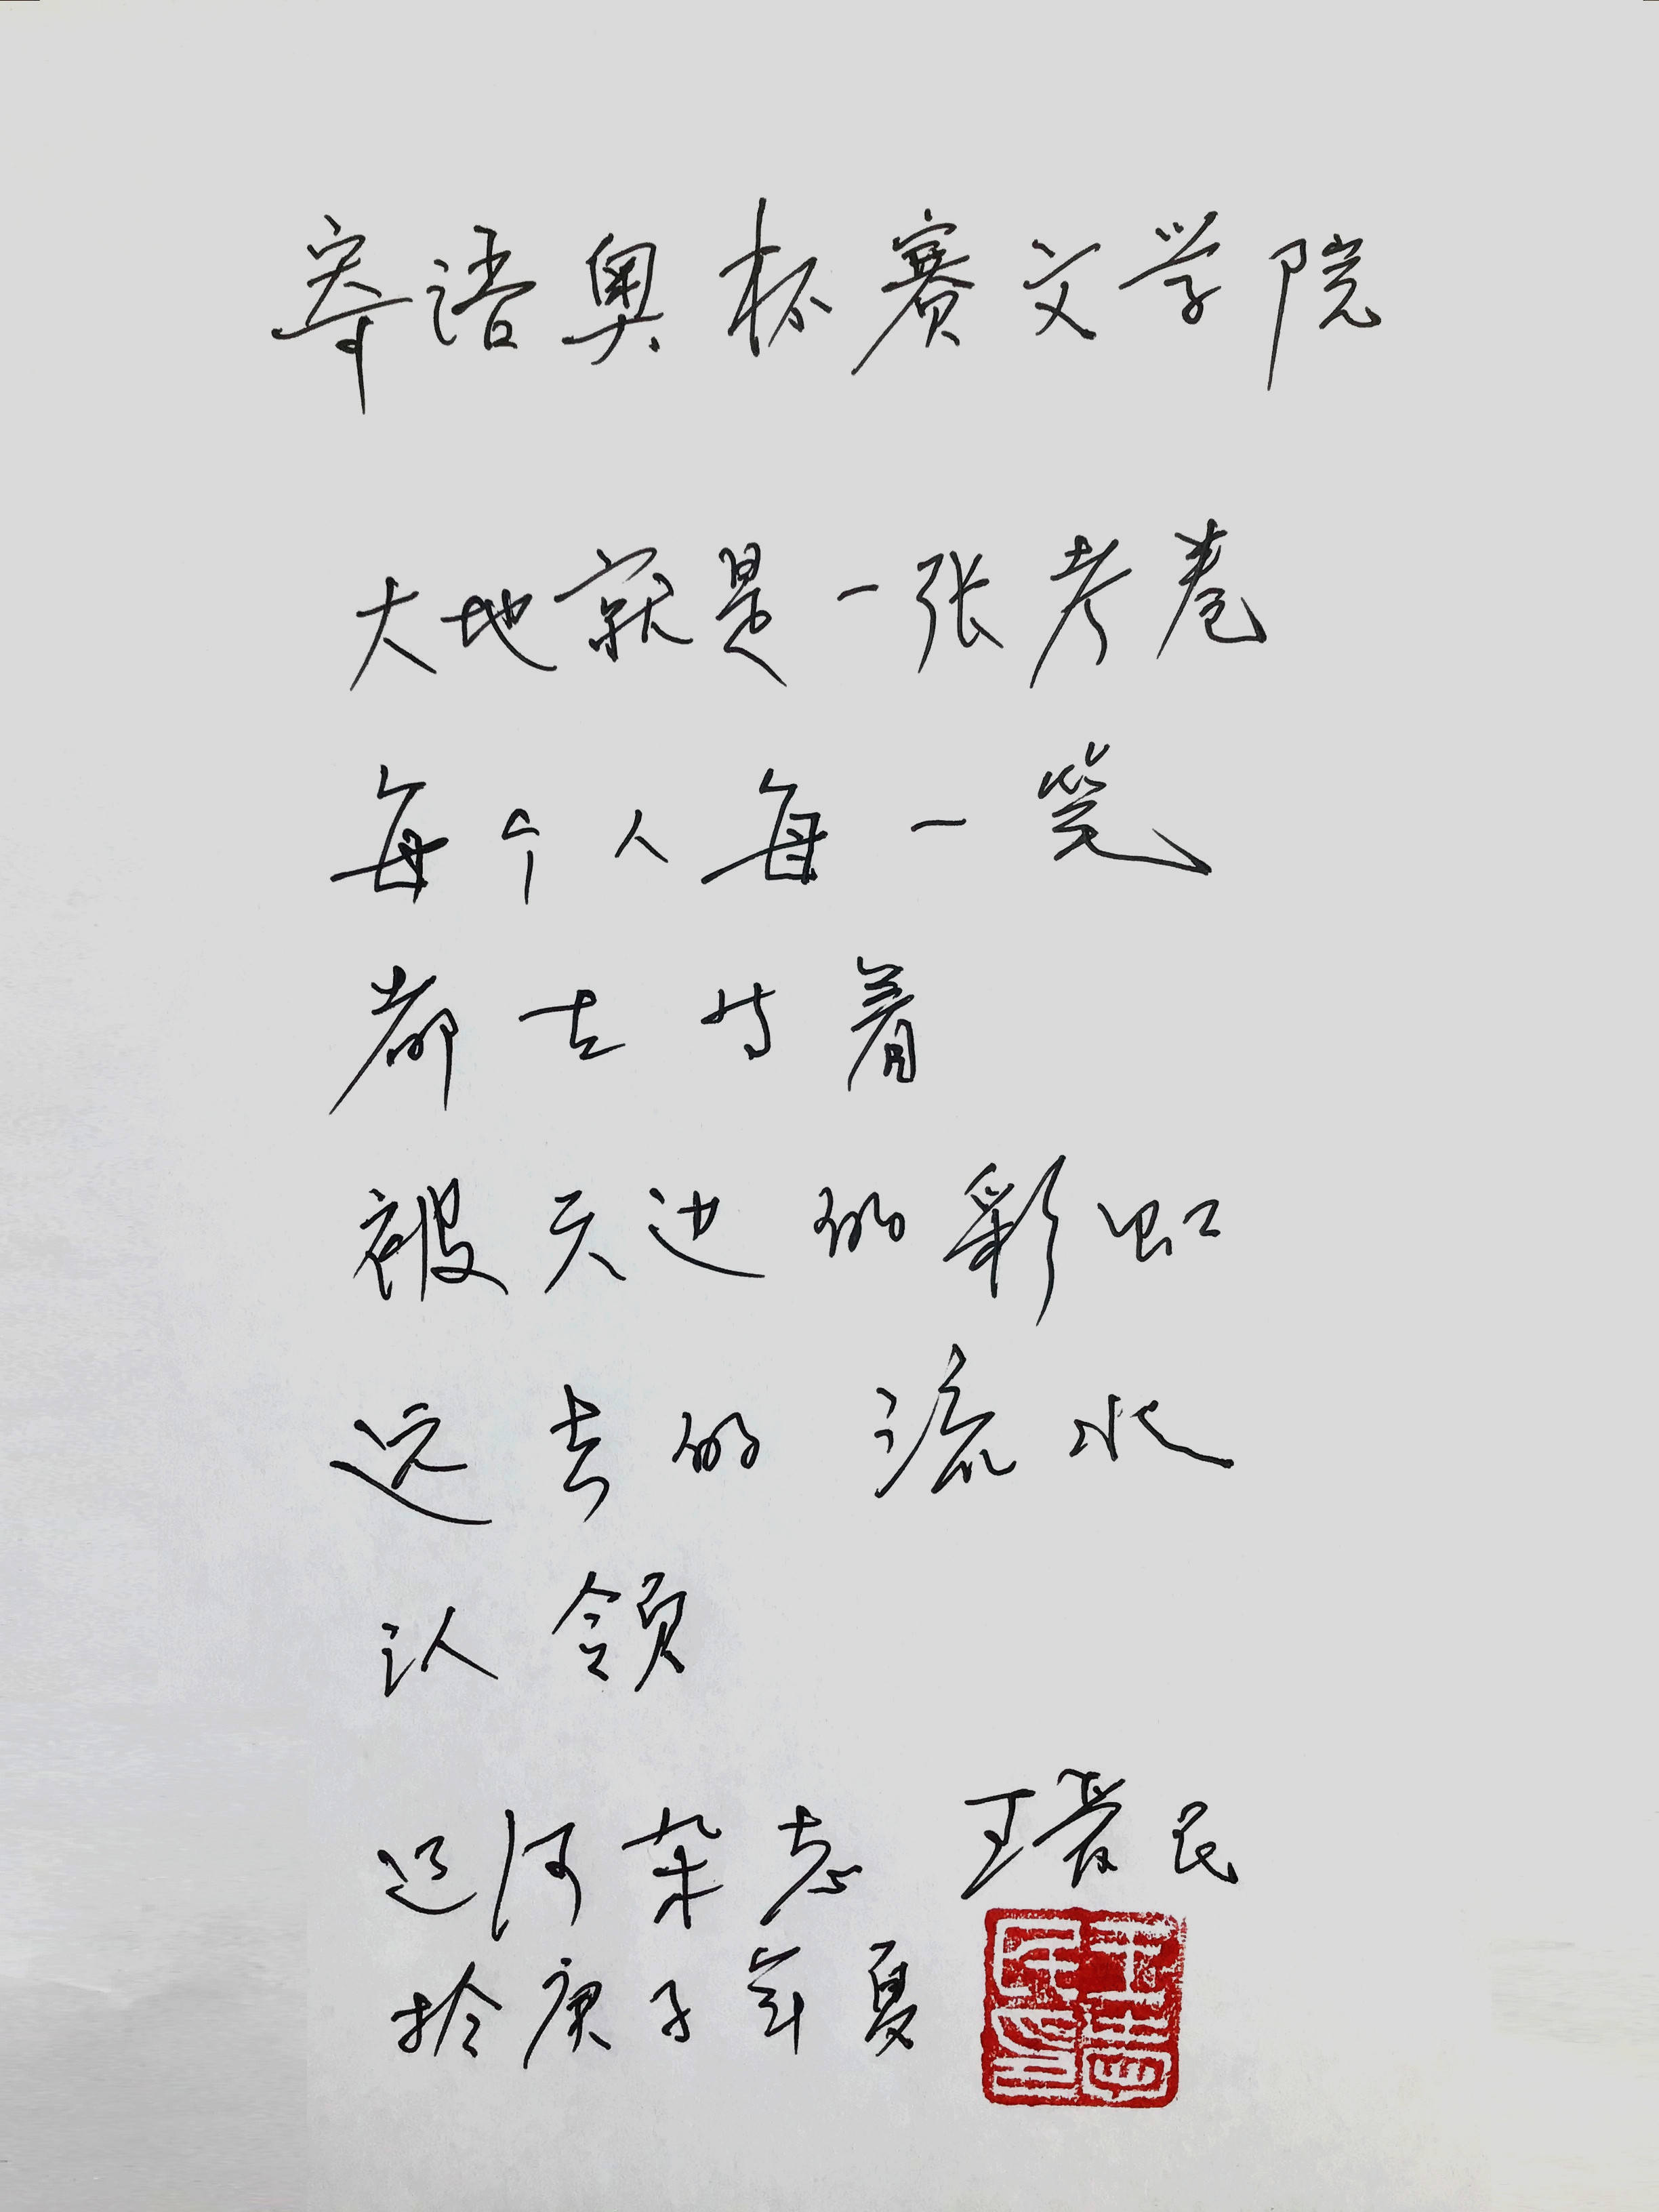 寄语奥杯赛文学院
大地就是一张考卷
每个人每一笔
都在等着
被天边的彩虹
远去的流水
认领
辽河杂志 王
于庚子年夏